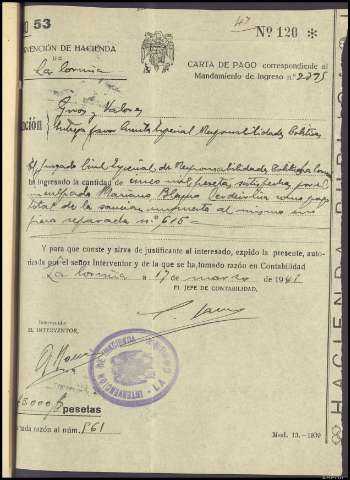 47
O 53
Nº 120 *
RVENCIÓN DE HACIENDA
DE
La Coruña
CARTA DE PAGO correspondiente al
Mandamiento de Ingreso n.º 2875
Giros y Valores
Entrega favor Cuenta Especial Responsabilidades Políticas
El Juzgado Civil Especial de Responsabilidades Políticas
ha ingresado la cantidad de cinco mil pesetas por el
inculpado Mariano Blanco como pago
total de la sanción impuesta al mismo en
pieza separada nº 616 -
Y para que conste y sirva de justificante al interesado, expido la presente, auto-
rizada por el señor Interventor y de la que se ha tomado razón en Contabilidad
La Coruña a 17 de marzo de 1941
EL JEFE DE CONTABILIDAD,
EL INTERVENTOR,
INTERVENCIÓN DE HACIENDA
5.000 pesetas
razón al núm. 861
Mod. 13.-1939
HACIENDA